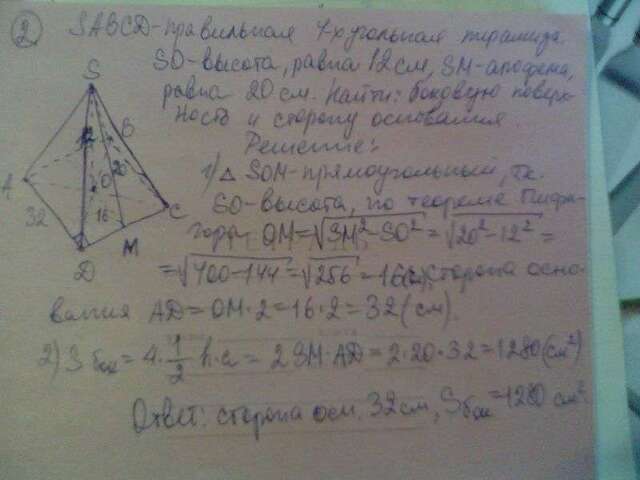 2 SABCD-правильная 4-х угольная пирамида.
SO-высота, равна 12 см, SM-апофема,
равна 20 см. Найти: боковую поверх-
ность и сторону основания.
Решение:
1) △ SOM-прямоугольный, т.к.
SO-высота, по теореме Пифа-
гора OM=√SM²-SO²=√20²-12²=
=√400-144=√256=16(см), сторона осно-
вания AD=OM·2=16·2=32(см).
2) S бок=4·1/2 h·a=2SM·AD=2·20·32=1280(см²)
Ответ: сторона осн. 32 см, Sбок=1280 см²
S
B
A
O
20
12
C
32
16
M
D